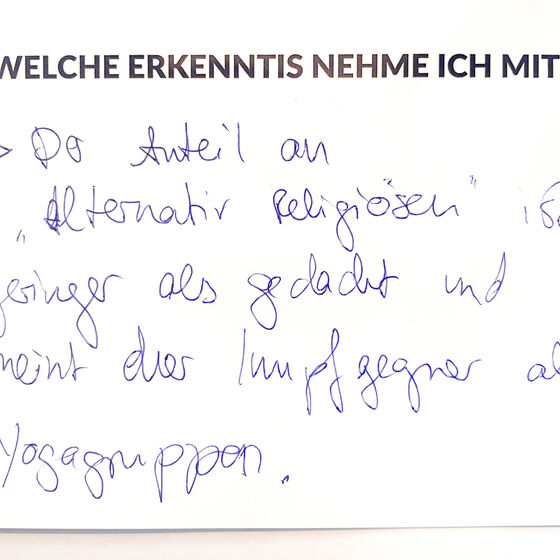 WELCHE ERKENNTIS NEHME ICH MIT
> Der Anteil an
„Alternativ Religiösen" is
geringer als gedacht und
meint eher Impfgegner al
Yogagruppen.